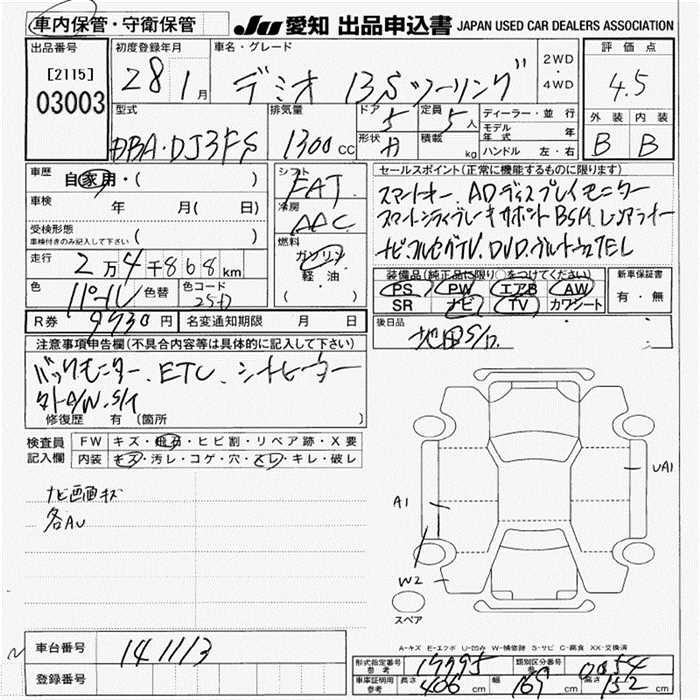 車内保管・守衛保管
JU 愛知 出品申込書 JAPAN USED CAR DEALERS ASSOCIATION
出品番号
[2115]
03003
初度登録年月
28 1月
車名・グレード
デミオ 13Sツーリング
2WD
・
4WD
評価点
4.5
外装 内装
B B
型式
DBA・DJ3FS
排気量
1300CC
ドア 5
形状
定員 5人
積載 kg
ディーラー・並行
モデル年式 年
ハンドル 左・右
車歴
自家用・( )
車検 年 月(日)
受検形態
車検付きのみ記入して下さい ( )
走行 2万4千868km
色 パール 色替
色コード
25D
R券 9930円 名変通知期限 月 日
シフト
FAT
冷房
AAC
燃料
ガソリン
軽・油
( )
セールスポイント(正常に機能するものに限ります)
スマートキー、ADディスプレイモニター
スマートシティブレーキサポートBSM、レーンアラート
ナビ・フルセグTV、DVD、ブルートゥースTEL
装備品(純正品に限り○をつけてください)
PS PW エアB AW
SR ナビ TV カワシート
新車保証書
有・無
後日品
注意事項申告欄(不具合内容等は具体的に記入して下さい)
バックモニター、ETC、シートヒーター
社外A/W、S/T
修復歴 有 (箇所 )
検査員
記入欄
FW キズ・飛石・ヒビ割・リペア跡・X要
内装 キズ・汚レ・コゲ・穴・スレ・キレ・破レ
ナビ画面キズ
各AU
A1
UA1
W2
スペア
A-キズ E-エクボ U-凹み W-補修跡 S-サビ C-腐食 XX-交換済
車台番号 141113
登録番号
形式指定番号 参考 17995
類別区分番号 参考 0054
車庫証明用 参考 長さ 406cm 幅 169cm 高さ 152cm